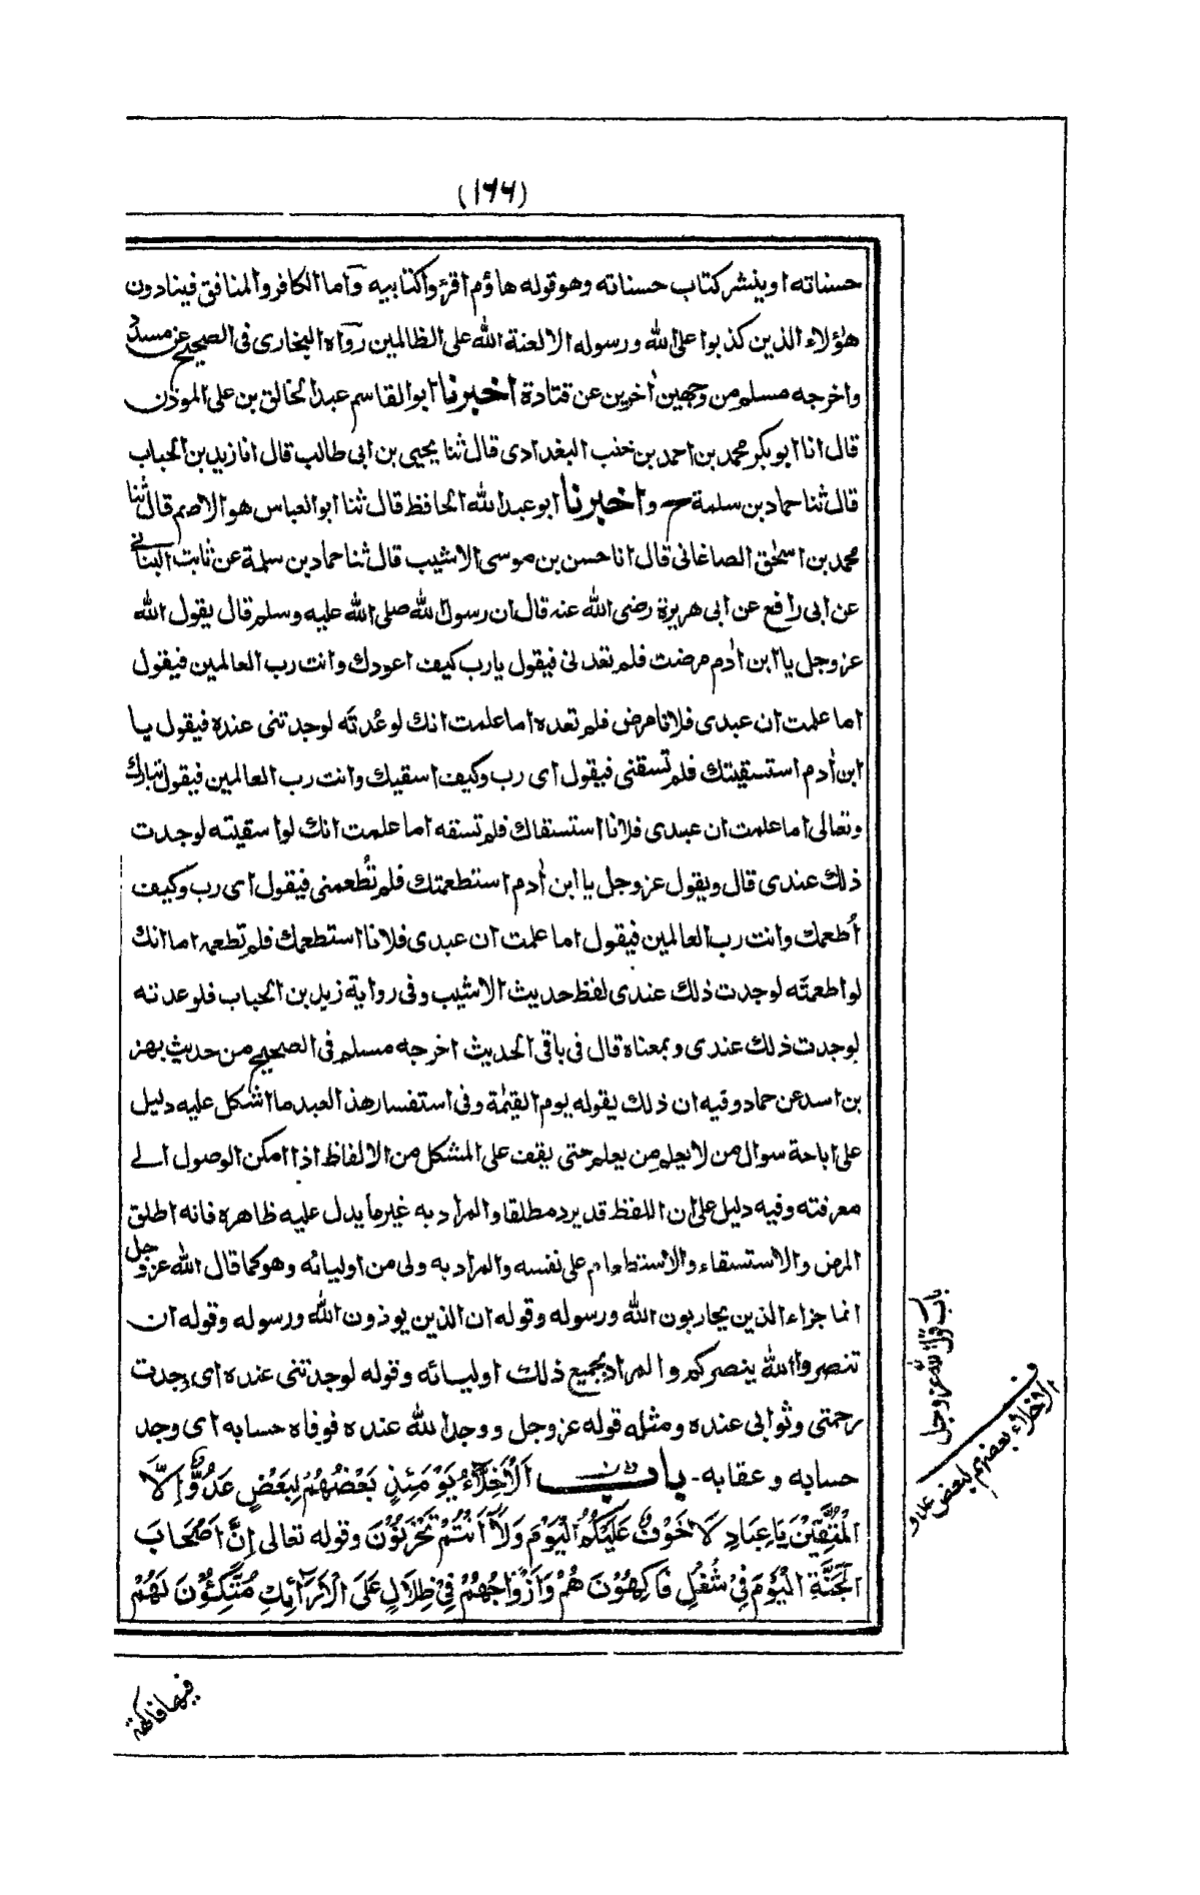 (١٦٦)
حسناته او ينشر كتاب حسناته وهو قوله هاؤم اقرؤا كتابيه وآما الكافر والمنافق فينادون
هؤلاء الذين كذبوا على الله ورسوله الا لعنة الله على الظالمين رواه البخارى فى الصحيح عن مسدد
واخرجه مسلم من وجهين اٰخرين عن قتادة اخبرنا ابو القاسم عبد الخالق بن على الموذن
قال انا ابو بكر محمد بن احمد بن خنب البغدادى قال ثنا يحيى بن ابى طالب قال انا زيد بن الحباب
قال ثنا حماد بن سلمة ح واخبرنا ابو عبد الله الحافظ قال ثنا ابو العباس هو الاصم قال ثنا
محمد بن اسحٰق الصاغانى قال انا حسن بن موسى الاشيب قال ثنا حماد بن سلمة عن ثابت البنانے
عن ابى رافع عن ابى هريرة رضى الله عنه قال ان رسول الله صلى الله عليه وسلم قال يقول الله
عز وجل يا ابن اٰدم مرضت فلم تعدنى فيقول يارب كيف اعودك وانت رب العالمين فيقول
اما علمت ان عبدى فلانا مرض فلم تعده اما علمت انك لو عُدتَه لوجدتنى عنده فيقول يا
ابن اٰدم استسقيتك فلم تسقنى فيقول اى رب وكيف اسقيك وانت رب العالمين فيقول تبارك
وتعالى اما علمت ان عبدى فلانا استسقاك فلم تسقه اما علمت انك لو اسقيته لوجدت
ذلك عندى قال ويقول عز وجل يا ابن اٰدم استطعمتك فلم تُطعمنى فيقول اى رب وكيف
اُطعمك وانت رب العالمين فيقول اما علمت ان عبدى فلانا استطعمك فلم تطعمه اما انك
لو اطعمتَه لوجدت ذلك عندى لفظ حديث الاشيب وفى رواية زيد بن الحباب فلو عدته
لوجدت ذلك عندى وبمعناه قال فى باقى الحديث اخرجه مسلم فى الصحيح من حديث بهز
بن اسد عن حماد وفيه ان ذلك يقوله يوم القيٰمة وفى استفسار هذا العبد ما اشكل عليه دليل
على اباحة سوال من لا يعلم من يعلم حتى يقف على المشكل من الالفاظ اذا امكن الوصول الے
معرفته وفيه دليل على ان اللفظ قد يرد مطلقا والمراد به غير ما يدل عليه ظاهره فانه اطلق
المرض والاستسقاء والاستطعام على نفسه والمراد به ولى من اوليائه وهو كما قال الله عز وجل
انما جزاء الذين يحاربون الله ورسوله وقوله ان الذين يوذون الله ورسوله وقوله ان
تنصروا الله ينصركم والمراد بجميع ذلك اوليائه وقوله لوجدتنى عنده اى وجدت
رحمتى وثوابى عنده ومثله قوله عز وجل ووجد الله عنده فوفاه حسابه اى وجد
حسابه وعقابه- باب اَلْاَخِلَّاءُ يَوْمَئِذٍ بَعْضُهُمْ لِبَعْضٍ عَدُوٌّ اِلَّا
الْمُتَّقِيْنَ يَا عِبَادِ لَا خَوْفٌ عَلَيْكُمُ الْيَوْمَ وَلَا اَنْتُمْ تَحْزَنُوْنَ وقوله تعالى اِنَّ اَصْحَابَ
الْجَنَّةِ الْيَوْمَ فِىْ شُغُلٍ فَاكِهُوْنَ هُمْ وَاَزْوَاجُهُمْ فِىْ ظِلَالٍ عَلَى الْاَرَائِكِ مُتَّكِئُوْنَ لَهُمْ
باب قول الله عز وجل
الاخلاء بعضهم لبعض عدو
فيها فاكهة